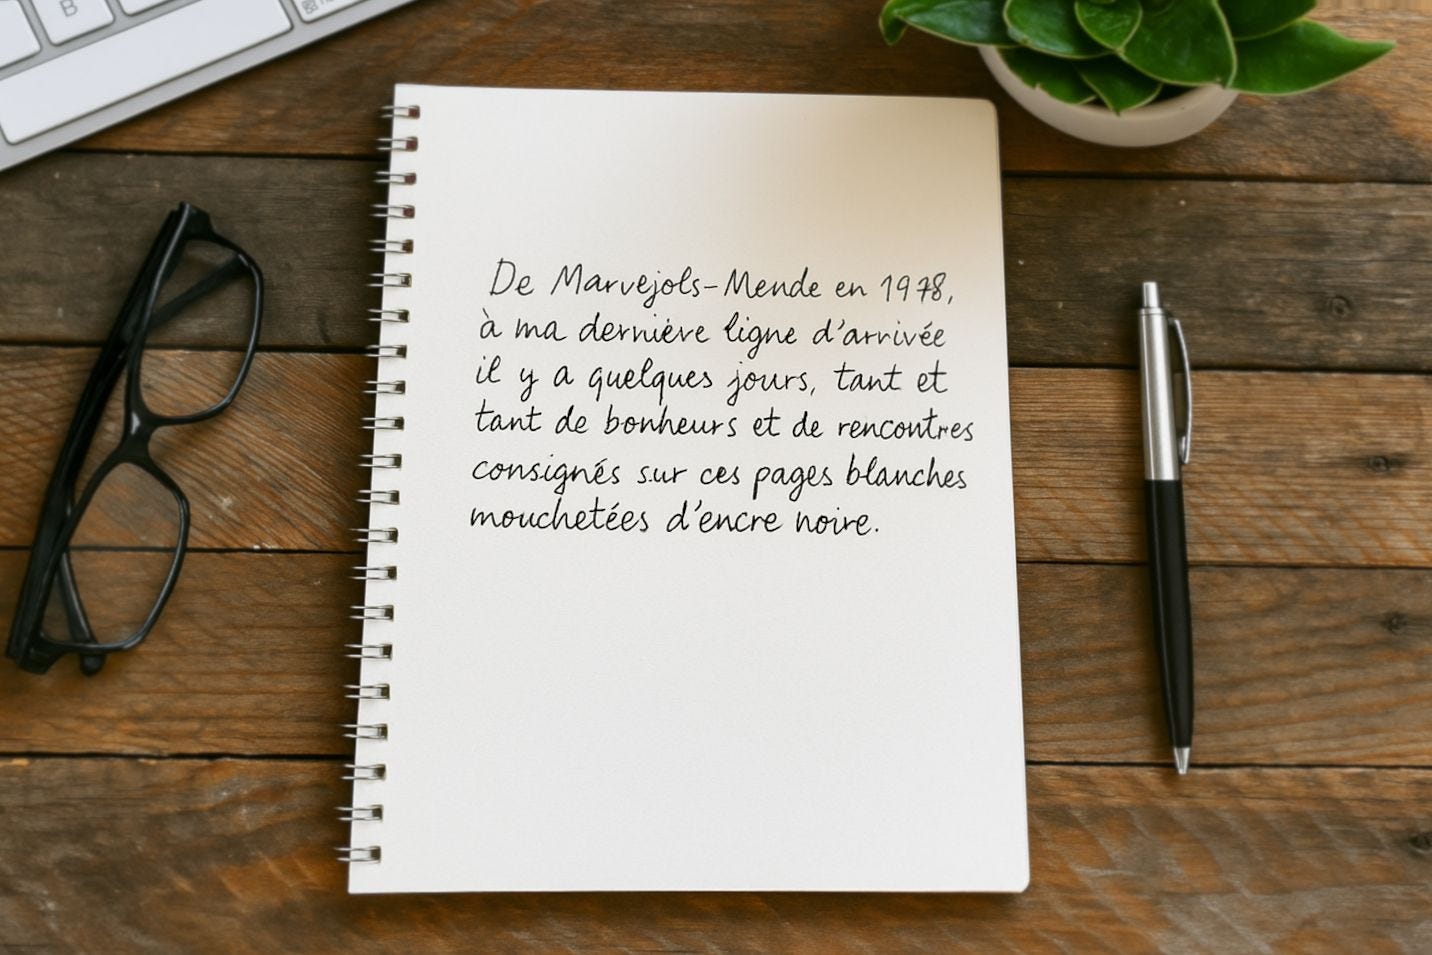 B
De Marvejols-Mende en 1978,
à ma dernière ligne d'arrivée
il y a quelques jours, tant et
tant de bonheurs et de rencontres
consignés sur ces pages blanches
mouchetées d'encre noire.